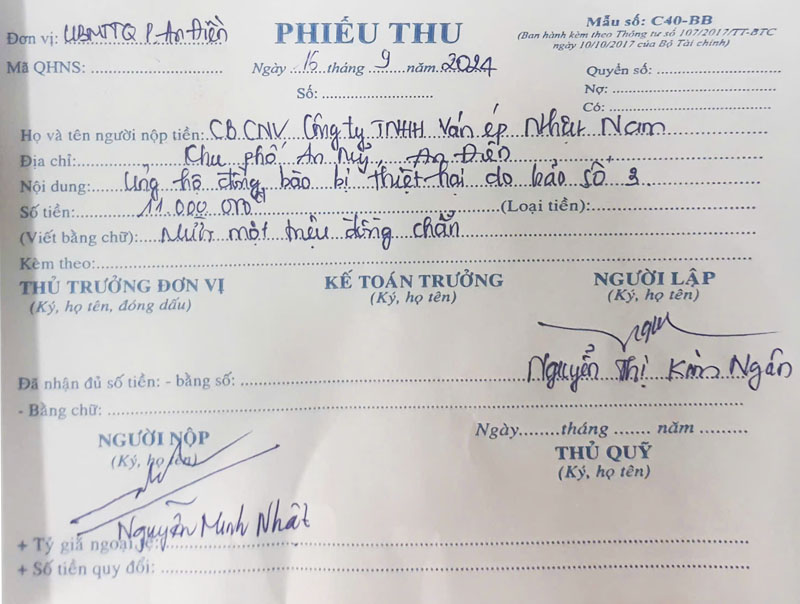 Đơn vị: UBMTTQ P. An Điền
PHIẾU THU
Mẫu số: C40-BB
(Ban hành kèm theo Thông tư số 107/2017/TT-BTC
ngày 10/10/2017 của Bộ Tài chính)
Mã QHNS:
Ngày 15 tháng 9 năm 2024
Số:
Quyển số:
Nợ:
Có:
Họ và tên người nộp tiền: CB.CNV Công ty TNHH Ván ép Nhật Nam
Địa chỉ: Khu phố An Mỹ, An Điền
Nội dung: Ủng hộ đồng bào bị thiệt hại do bão số 3
Số tiền: 11.000.000đ (Loại tiền):
(Viết bằng chữ): Mười một triệu đồng chẵn
Kèm theo:
THỦ TRƯỞNG ĐƠN VỊ
(Ký, họ tên, đóng dấu)
KẾ TOÁN TRƯỞNG
(Ký, họ tên)
NGƯỜI LẬP
(Ký, họ tên)
Nguyễn Thị Kim Ngân
Đã nhận đủ số tiền: - bằng số:
- Bằng chữ:
Ngày tháng năm
NGƯỜI NỘP
(Ký, họ tên)
THỦ QUỸ
(Ký, họ tên)
Nguyễn Minh Nhật
+ Tỷ giá ngoại tệ:
+ Số tiền quy đổi: